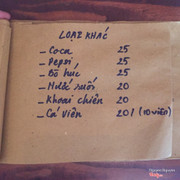 LOẠI KHÁC
- Coca 25
- Pepsi 25
- Bò húc 25
- Nước suối 20
- Khoai chiên 20
- Cá viên 20 / (10 viên)